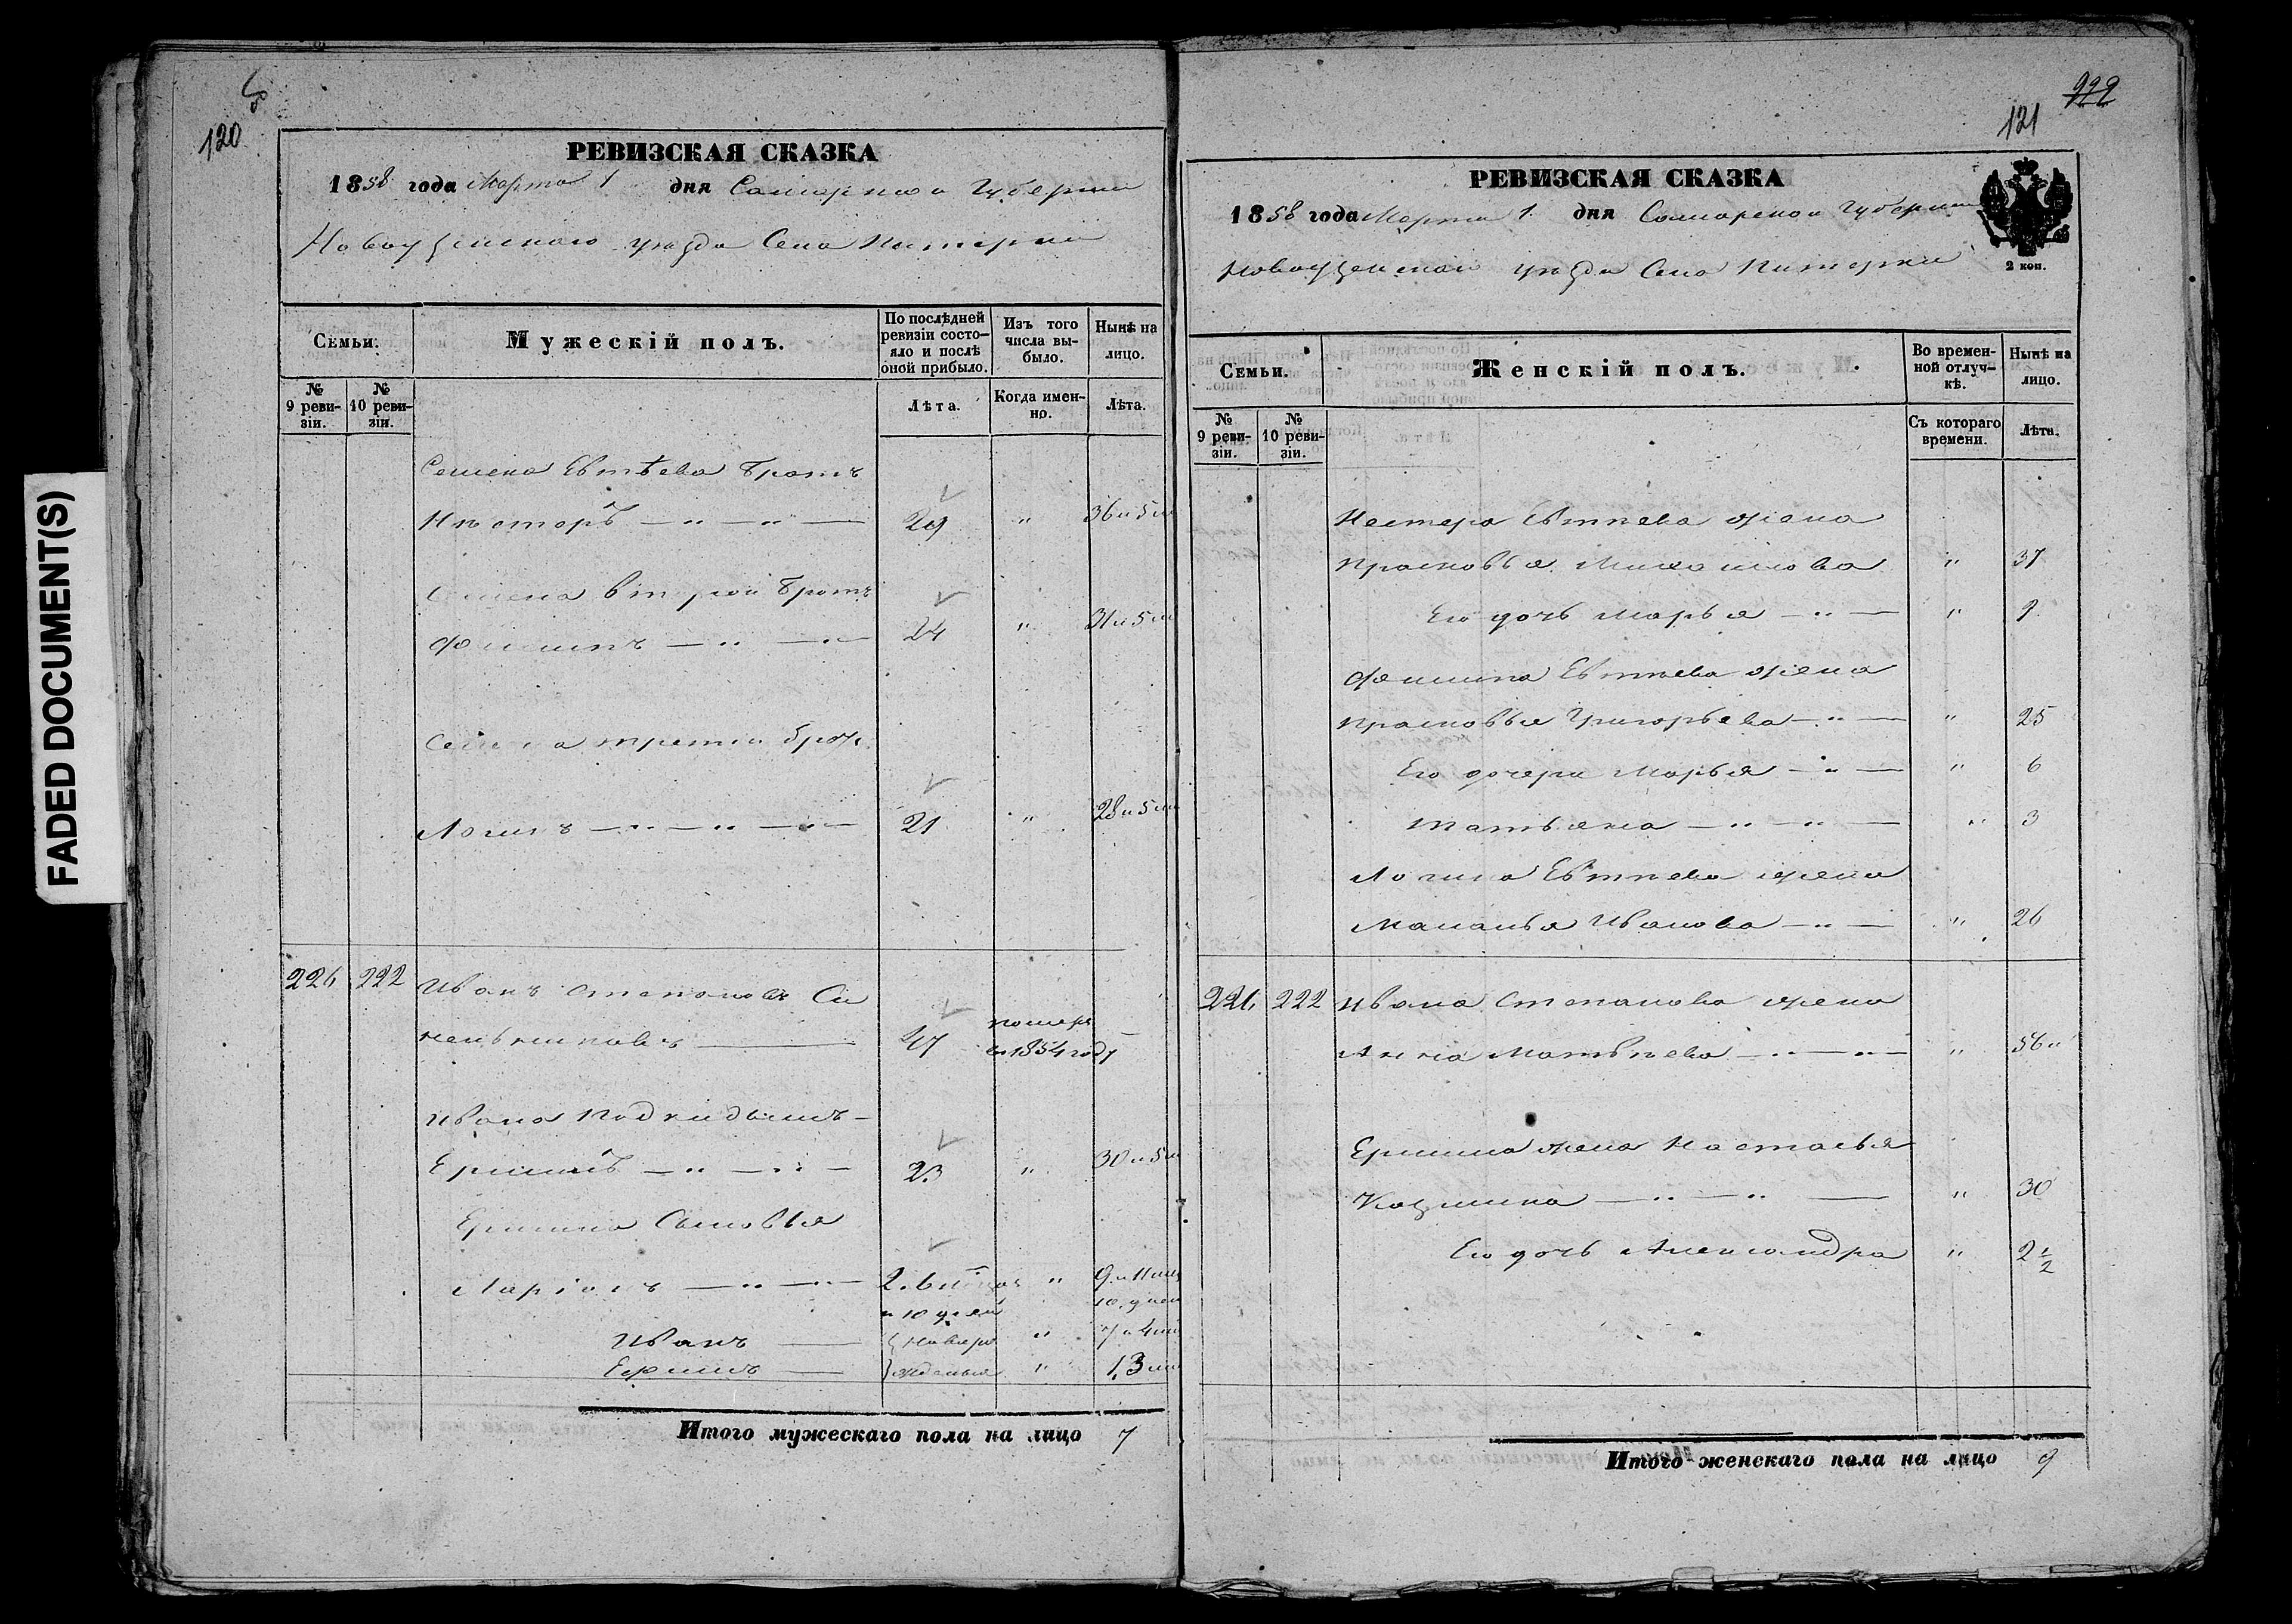 FADED DOCUMENT(S)
120
РЕВИЗСКАЯ СКАЗКА
1858 года Марта 1 дня Самарской Губернии
Новоузенского уѣзда Села Питерки
Семьи.
Мужескій полъ.
По послѣдней ревизіи состояло и послѣ оной прибыло.
Изъ того числа выбыло.
Нынѣ на лицо.
№ 9 ревизіи.
№ 10 ревизіи.
Лѣта.
Когда именно.
Лѣта.
Семена Евтѣева братъ
Нѣсторъ — „ — „ — 29 „ 36 и 5 м
Семена второй братъ
Фоминъ — „ — „ — 24 „ 31 и 5 м
Семена третий братъ
Логинъ — „ — „ — „ — 21 „ 28 и 5 м
226 222 Иванъ Степановъ Си
нельниковъ — 47 померъ —
въ 1854 году
Ивана Подкидышъ —
Ерминъ — „ — „ — 23 „ 30 и 5 м
Ермина Сыновья
Ларіонъ — „ — „ — 2. 6 „ 9 и 11 мц
и 10 дней 10 дней
Иванъ — новоро „ 7 и 4 м
Ерминъ — жденыя „ 1, 3 м
Итого мужескаго пола на лицо 7
222
121
РЕВИЗСКАЯ СКАЗКА
1858 года Марта 1. дня Самарской Губернии
Новоузенского уѣзда Села Питерки
2 коп.
Семьи.
Женскій полъ.
Во временной отлучкѣ.
Нынѣ на лицо.
№ 9 ревизіи.
№ 10 ревизіи.
Съ котораго времени.
Лѣта.
Нестера Евтѣева жена
Прасковья Михайлова „ 37
Его дочь Марья — „ — „ 9
Фомина Евтѣева жена
Прасковья Григорьева — „ — „ 25
Его дочери Марья — „ — „ 6
Татьяна — „ — „ — „ 3
Логина Евтѣева жена
Маланья Иванова — „ — „ 26
226 222 Ивана Степанова жена
Анна Матвѣева — „ — „ — „ 56 „
Ермина жена Настасья
Козмина — „ — „ — „ 30
Его дочь Александра „ 2 1/2
Итого женскаго пола на лицо 9